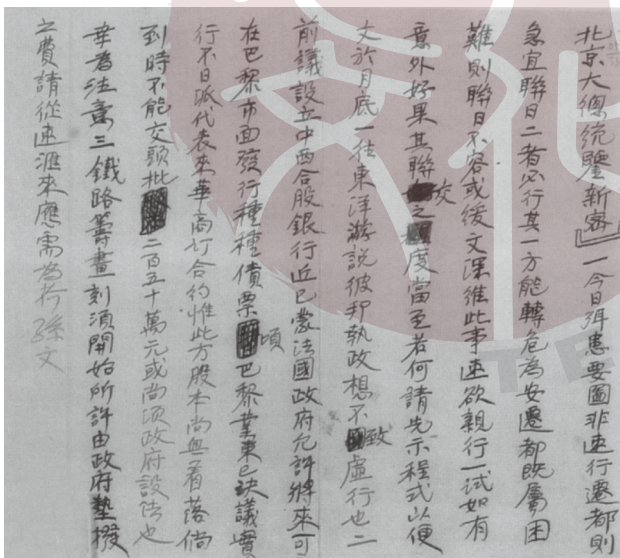 北京大總統鑒新密一今日弭患要圖非速行遷都則
急宜聯日二者必行其一方能轉危為安遷都既屬困
難則聯日不容或後文深維此事速欲親行一試如有
意外好果其聯交之程度當至若何請先示程式以便
文於月底一往東洋游說彼邦執政想不致虛行也二
前議設立中西合股銀行近已蒙法國政府允許將來可
在巴黎市面發行種種債票頃巴黎業東已決議實
行不日派代表來華商訂合約惟此方股本尚無着落倘
到時不能交頭批二百五十萬元或尚須政府設法也
幸為注意三鐵路籌畫刻須開始所許由政府墊撥
之費請從速滙來應需為荷孫文